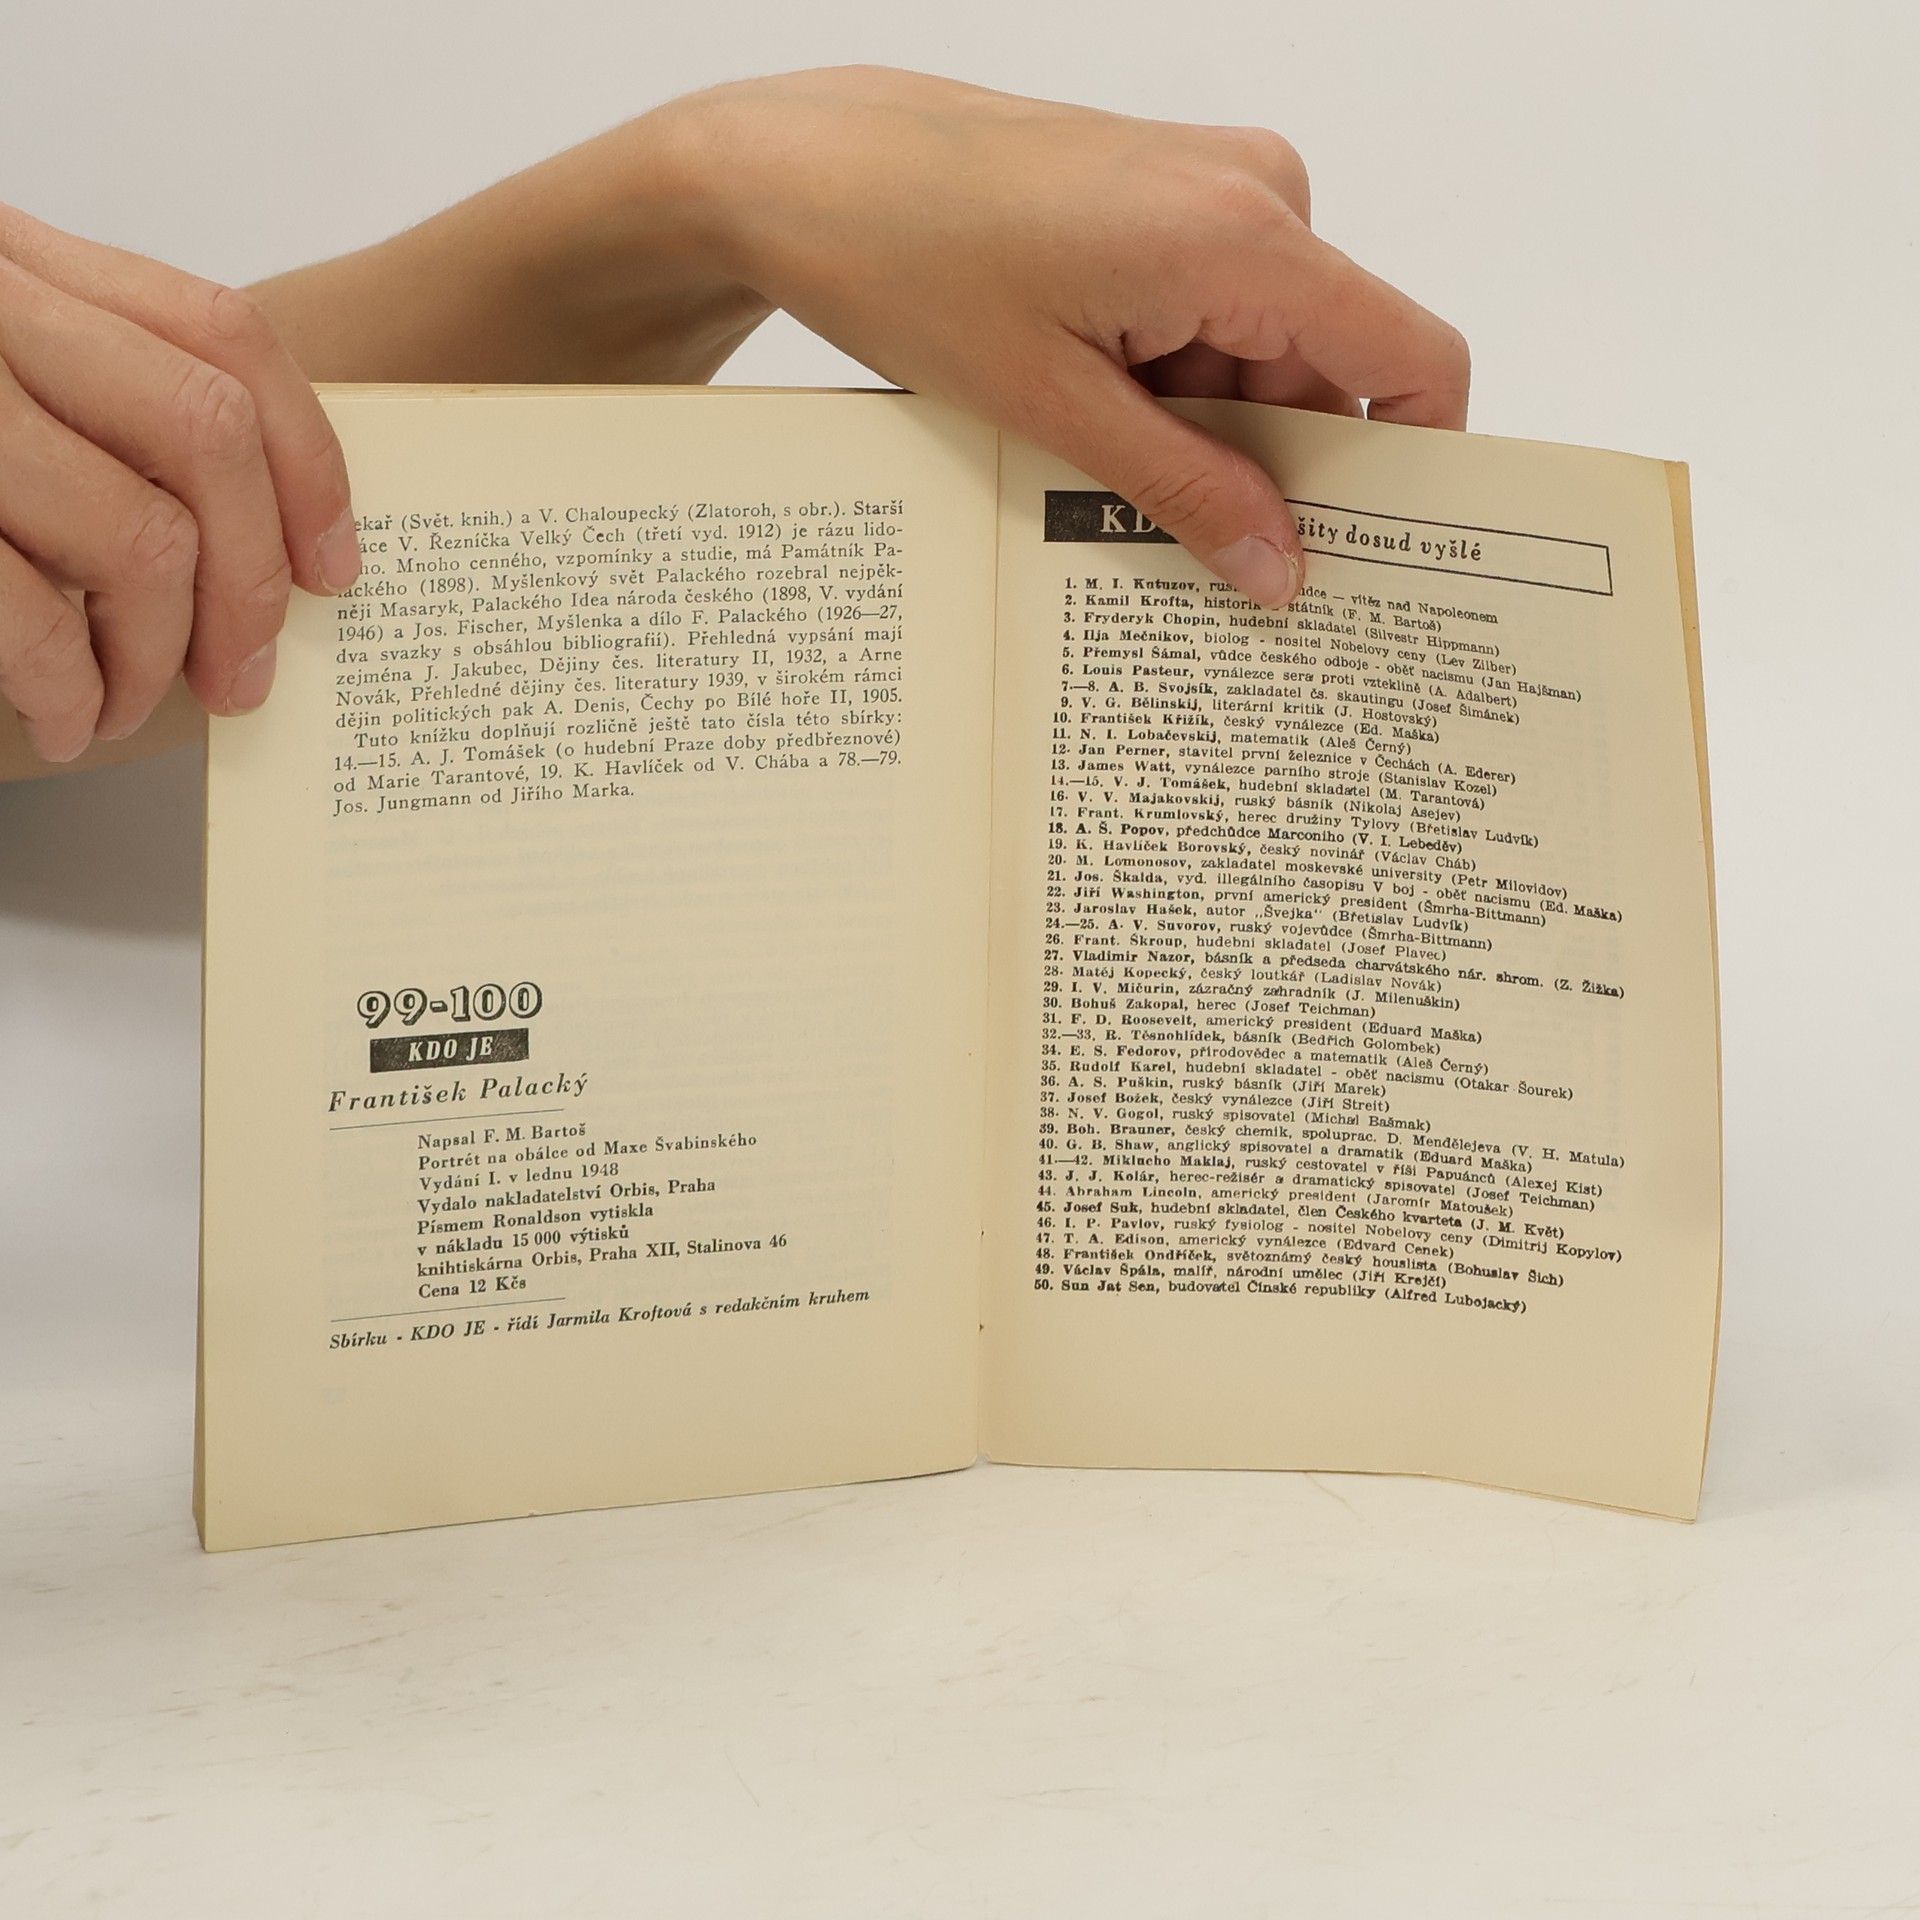 ekař (Svět. knih.) a V. Chaloupecký (Zlatoroh, s obr.). Starší
áce V. Řezníčka Velký Čech (třetí vyd. 1912) je rázu lido-
ho. Mnoho cenného, vzpomínky a studie, má Památník Pa-
lackého (1898). Myšlenkový svět Palackého rozebral nejpěk-
něji Masaryk, Palackého Idea národa českého (1898, V. vydání
1946) a Jos. Fischer, Myšlenka a dílo F. Palackého (1926—27,
dva svazky s obsáhlou bibliografií). Přehledná vypsání mají
zejména J. Jakubec, Dějiny čes. literatury II, 1932, a Arne
Novák, Přehledné dějiny čes. literatury 1939, v širokém rámci
dějin politických pak A. Denis, Čechy po Bílé hoře II, 1905.
Tuto knížku doplňují rozličně ještě tato čísla této sbírky:
14.—15. A. J. Tomášek (o hudební Praze doby předbřeznové)
od Marie Tarantové, 19. K. Havlíček od V. Chába a 78.—79.
Jos. Jungmann od Jiřího Marka.
99-100
KDO JE
František Palacký
Napsal F. M. Bartoš
Portrét na obálce od Maxe Švabinského
Vydání I. v lednu 1948
Vydalo nakladatelství Orbis, Praha
Písmem Ronaldson vytiskla
v nákladu 15 000 výtisků
knihtiskárna Orbis, Praha XII, Stalinova 46
Cena 12 Kčs
Sbírku - KDO JE - řídí Jarmila Kroftová s redakčním kruhem
KD šity dosud vyšlé
1. M. I. Kutuzov, rus dce — vítěz nad Napoleonem
2. Kamil Krofta, historik státník (F. M. Bartoš)
3. Fryderyk Chopin, hudební skladatel (Silvestr Hippmann)
4. Ilja Mečnikov, biolog - nositel Nobelovy ceny (Lev Zilber)
5. Přemysl Šámal, vůdce českého odboje - oběť nacismu (Jan Hajšman)
6. Louis Pasteur, vynálezce sera proti vzteklině (A. Adalbert)
7.—8. A. B. Svojsík, zakladatel čs. skautingu (Josef Šimánek)
9. V. G. Bělinskij, literární kritik (J. Hostovský)
10. František Křižík, český vynálezce (Ed. Maška)
11. N. I. Lobačevskij, matematik (Aleš Černý)
12. Jan Perner, stavitel první železnice v Čechách (A. Ederer)
13. James Watt, vynálezce parního stroje (Stanislav Kozel)
14.—15. V. J. Tomášek, hudební skladatel (M. Tarantová)
16. V. V. Majakovskij, ruský básník (Nikolaj Asejev)
17. Frant. Krumlovský, herec družiny Tylovy (Břetislav Ludvík)
18. A. Š. Popov, předchůdce Marconiho (V. I. Lebeděv)
19. K. Havlíček Borovský, český novinář (Václav Cháb)
20. M. Lomonosov, zakladatel moskevské university (Petr Milovidov)
21. Jos. Škalda, vyd. illegálního časopisu V boj - oběť nacismu (Ed. Maška)
22. Jiří Washington, první americký president (Šmrha-Bittmann)
23. Jaroslav Hašek, autor „Švejka“ (Břetislav Ludvík)
24.—25. A. V. Suvorov, ruský vojevůdce (Šmrha-Bittmann)
26. Frant. Škroup, hudební skladatel (Josef Plavec)
27. Vladimir Nazor, básník a předseda charvátského nár. shrom. (Z. Žižka)
28. Matěj Kopecký, český loutkář (Ladislav Novák)
29. I. V. Mičurin, zázračný zahradník (J. Milenuškin)
30. Bohuš Zakopal, herec (Josef Teichman)
31. F. D. Roosevelt, americký president (Eduard Maška)
32.—33. R. Těsnohlídek, básník (Bedřich Golombek)
34. E. S. Fedorov, přírodovědec a matematik (Aleš Černý)
35. Rudolf Karel, hudební skladatel - oběť nacismu (Otakar Šourek)
36. A. S. Puškin, ruský básník (Jiří Marek)
37. Josef Božek, český vynálezce (Jiří Streit)
38. N. V. Gogol, ruský spisovatel (Michal Bašmak)
39. Boh. Brauner, český chemik, spoluprac. D. Mendělejeva (V. H. Matula)
40. G. B. Shaw, anglický spisovatel a dramatik (Eduard Maška)
41.—42. Miklucho Maklaj, ruský cestovatel v říši Papuánců (Alexej Kist)
43. J. J. Kolár, herec-režisér a dramatický spisovatel (Josef Teichman)
44. Abraham Lincoln, americký president (Jaromír Matoušek)
45. Josef Suk, hudební skladatel, člen Českého kvarteta (J. M. Květ)
46. I. P. Pavlov, ruský fysiolog - nositel Nobelovy ceny (Dimitrij Kopylov)
47. T. A. Edison, americký vynálezce (Edvard Cenek)
48. František Ondříček, světoznámý český houslista (Bohuslav Šich)
49. Václav Špála, malíř, národní umělec (Jiří Krejčí)
50. Sun Jat Sen, budovatel Čínské republiky (Alfred Lubojacký)